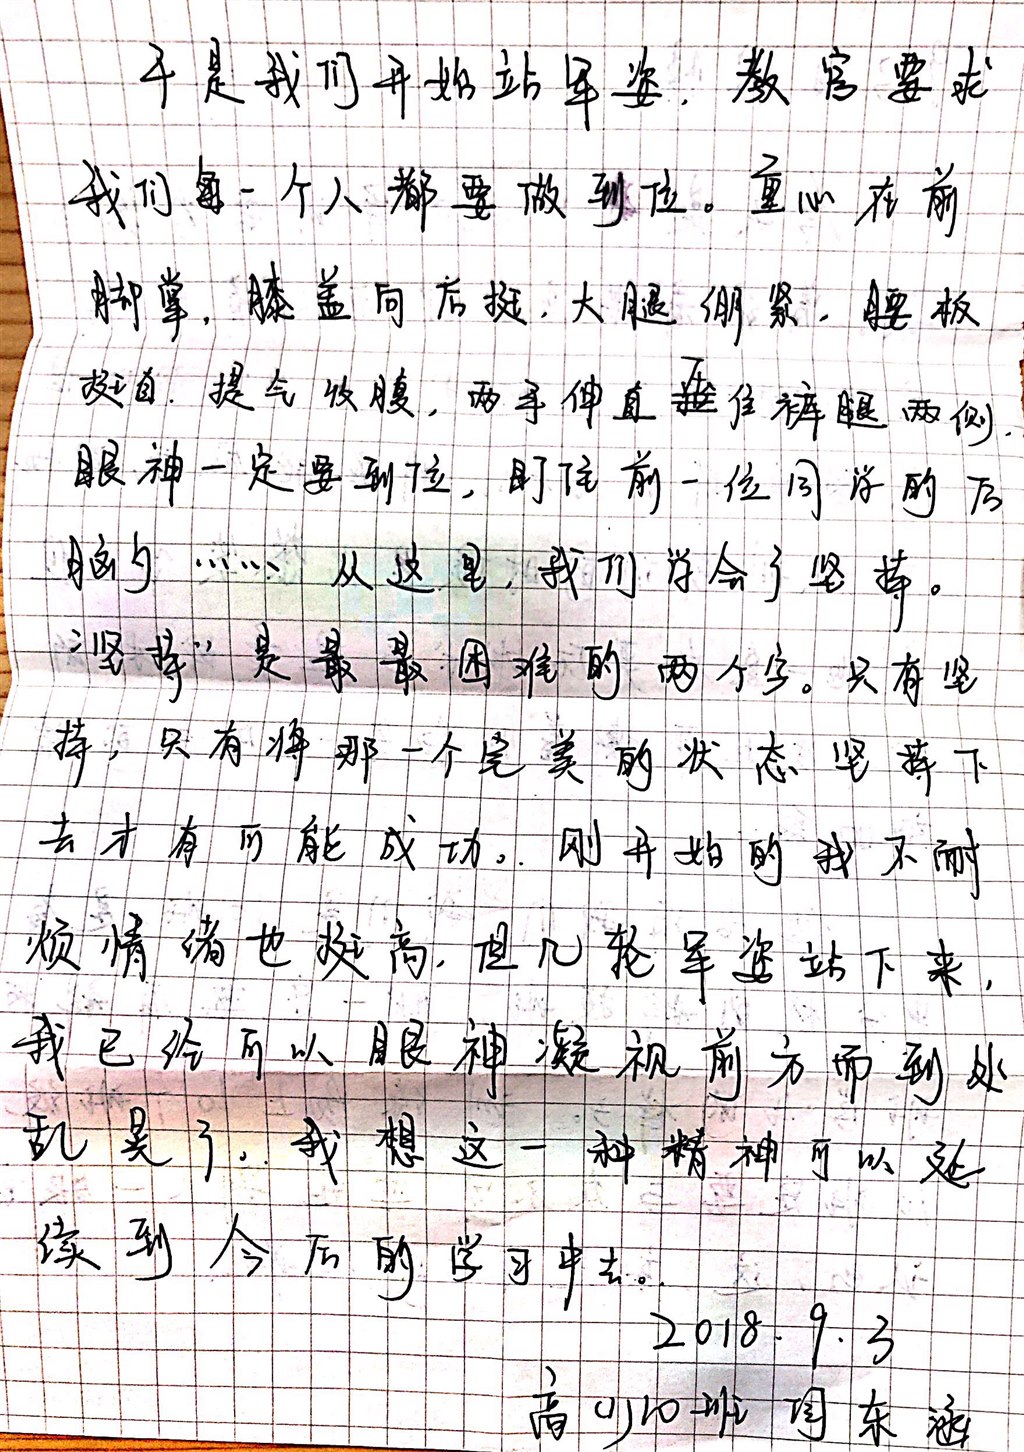 于是我们开始站军姿，教官要求
我们每一个人都要做到位。重心在前
脚掌，膝盖向后挺，大腿绷紧，腰板
挺直，提气收腹，两手伸直垂住裤腿两侧，
眼神一定要到位，盯住前一位同学的后
脑勺……从这里，我们学会了坚持。
“坚持”是最最困难的两个字。只有坚
持，只有将那一个完美的状态坚持下
去才有可能成功。刚开始的我不耐
烦情绪也挺高，但几轮军姿站下来，
我已经可以眼神凝视前方而到处
乱晃了。我想这一种精神可以延
续到今后的学习中去。
2018.9.3
高(1)10班 周东涵